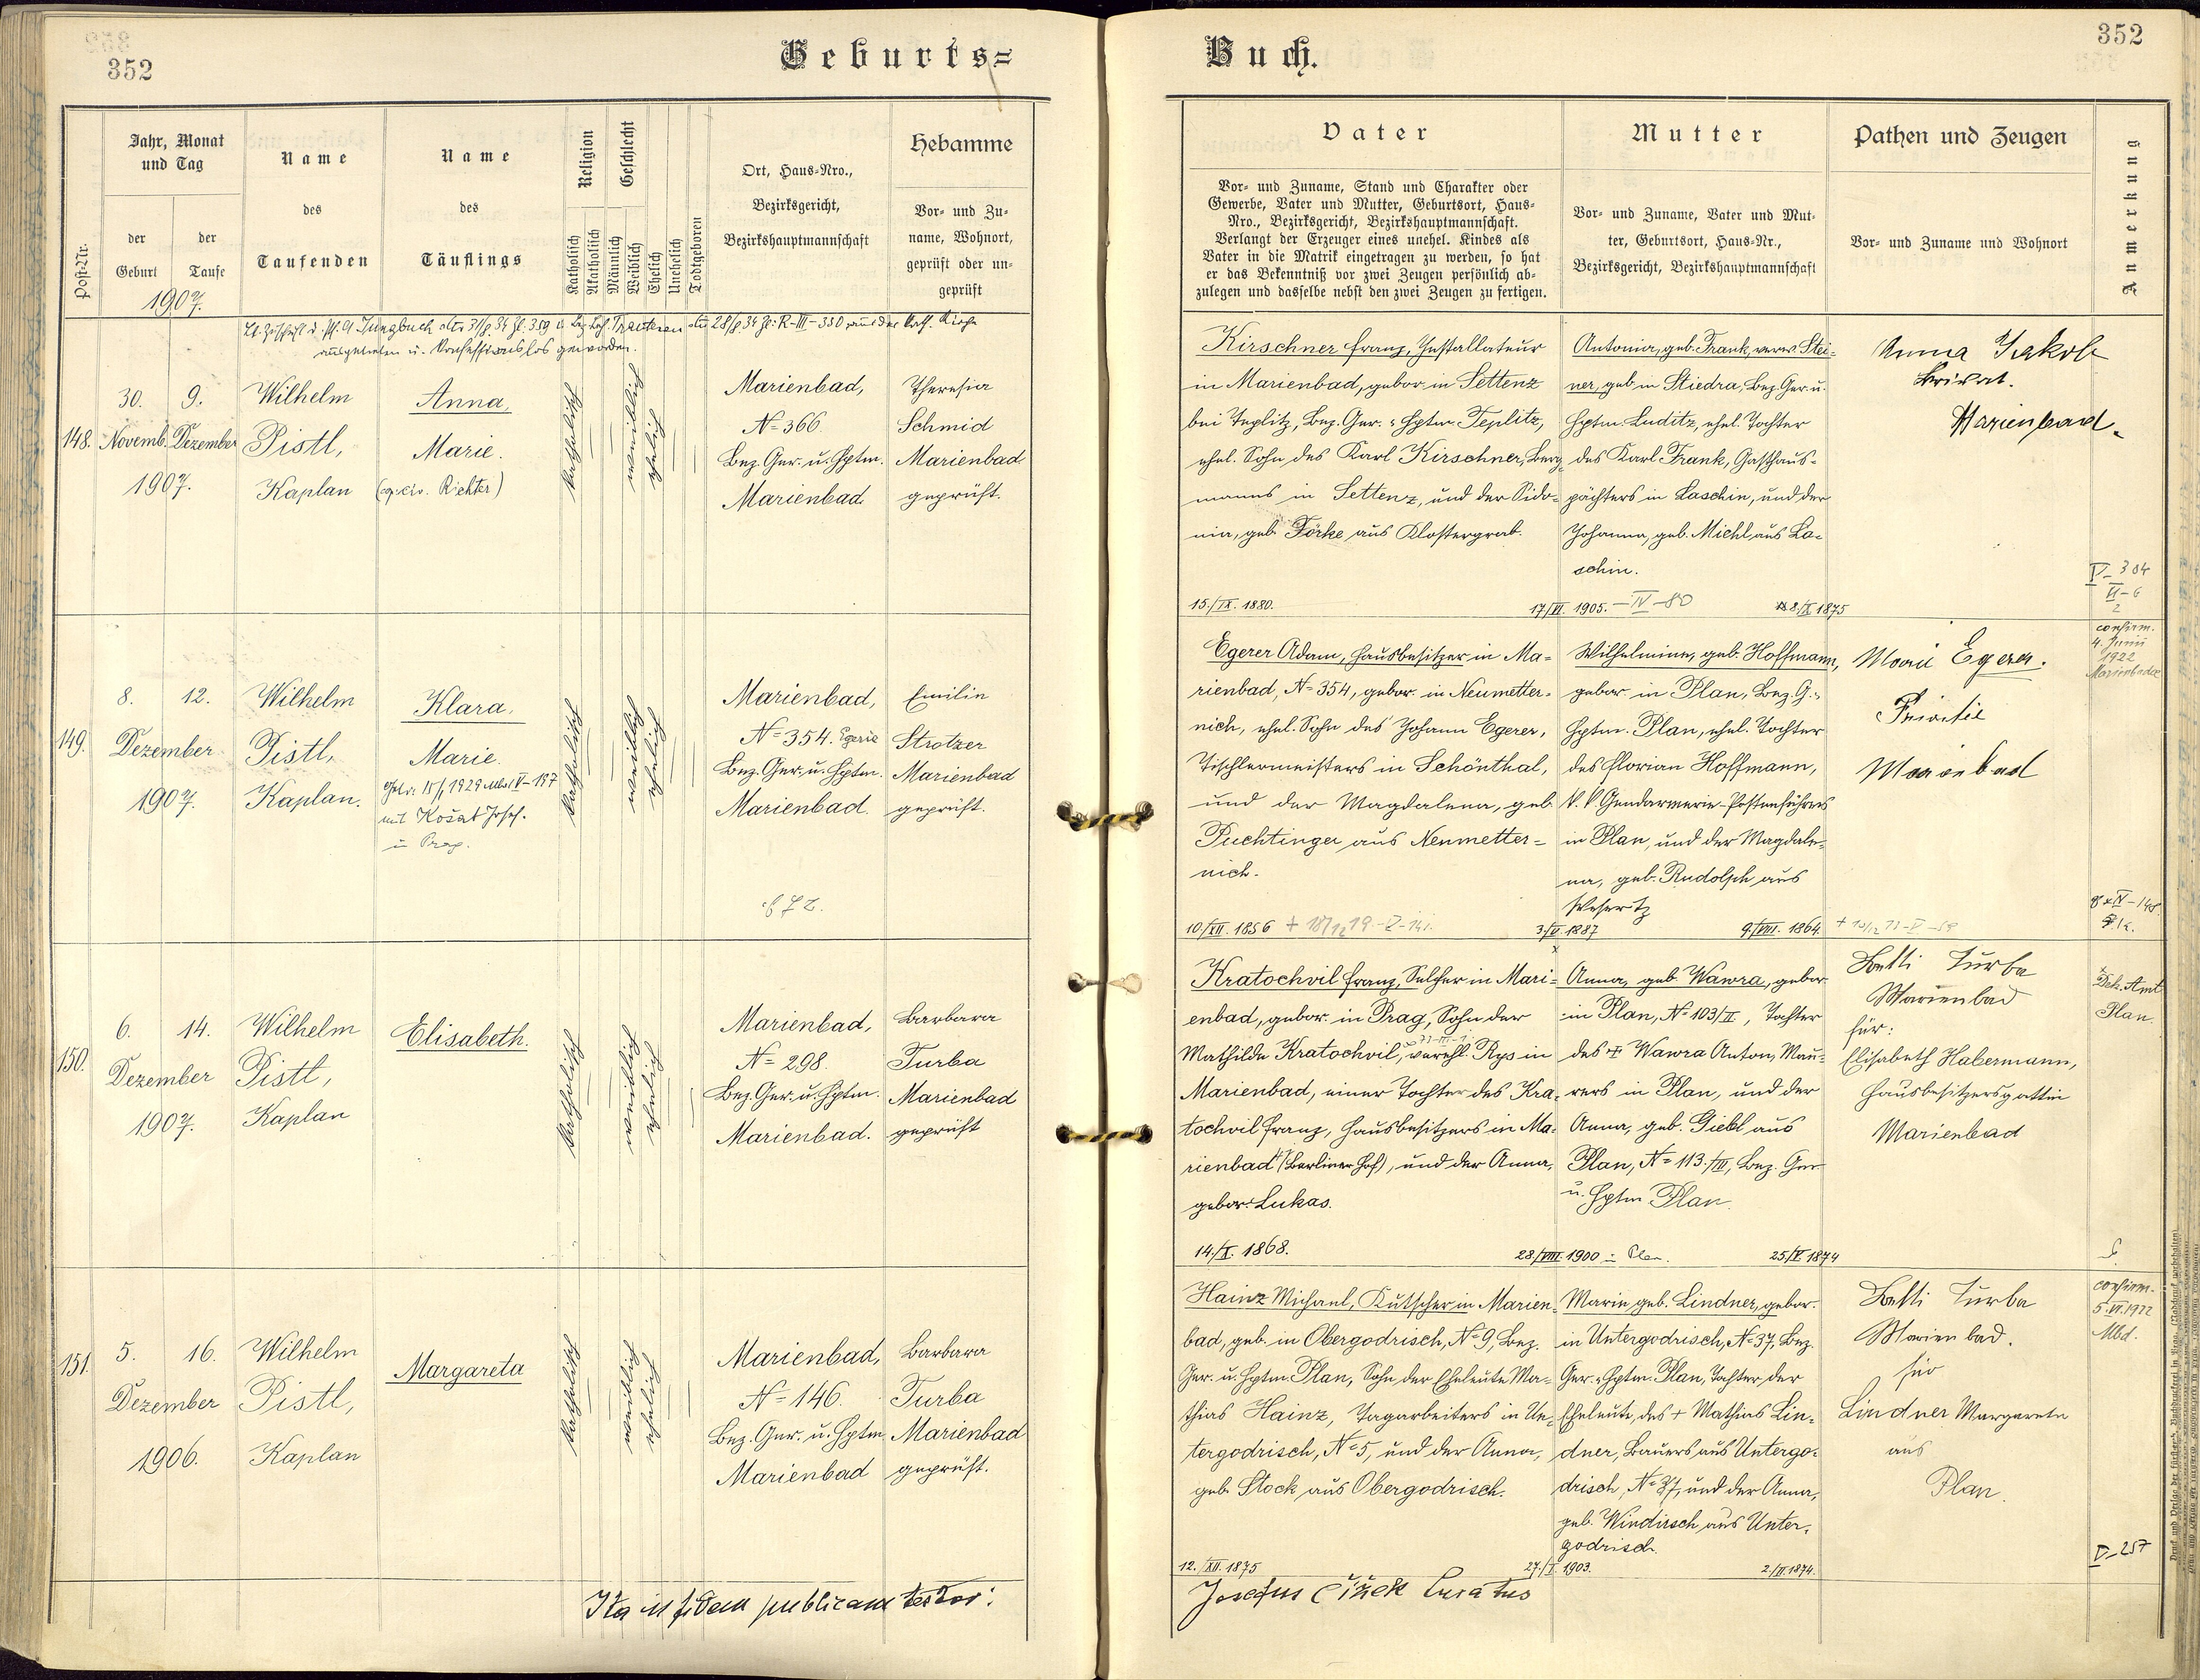 352
Geburts=
Jahr, Monat
und Tag
Name
Name
Religion
Geschlecht
Hebamme
Ort, Haus=Nro.,
Bezirksgericht,
Bezirkshauptmannschaft
des
des
Post=Nr.
der
Geburt
der
Taufe
Taufenden
Täuflings
Katholisch
Akatholisch
Männlich
Weiblich
Ehelich
Unehelich
Todtgeboren
Vor= und Zu=
name, Wohnort,
geprüft oder un=
geprüft
1907.
ausgetreten u. konfessionslos geworden.
148.
30. 9.
Novemb. Dezember
1907.
Wilhelm
Pistl,
Kaplan
Anna,
Marie.
katholisch
weiblich
ehelich
Marienbad,
N= 366.
Bez. Ger. u. Hptm.
Marienbad.
Theresia
Schmid
Marienbad
geprüft.
149.
8. 12.
Dezember
1907.
Wilhelm
Pistl,
Kaplan.
Klara,
Marie.
mit Košat Josef.
in Prag.
katholisch
weiblich
ehelich
Marienbad,
N= 354. Egeria
Bez. Ger. u. Hptm.
Marienbad.
Emilie
Strotzer
Marienbad
geprüft.
150.
6. 14.
Dezember
1907.
Wilhelm
Pistl,
Kaplan
Elisabeth.
katholisch
weiblich
ehelich
Marienbad,
N= 298.
Bez. Ger. u. Hptm.
Marienbad.
Barbara
Turba
Marienbad
geprüft
151.
5. 16.
Dezember
1906.
Wilhelm
Pistl,
Kaplan
Margareta
katholisch
weiblich
ehelich
Marienbad,
N= 146.
Bez. Ger. u. Hptm.
Marienbad
Barbara
Turba
Marienbad
geprüft.
Ita in fidem publicam testor:
352
Buch.
Vater
Mutter
Pathen und Zeugen
Anmerkung
Vor= und Zuname, Stand und Charakter oder
Gewerbe, Vater und Mutter, Geburtsort, Haus=
Nro., Bezirksgericht, Bezirkshauptmannschaft.
Verlangt der Erzeuger eines unehel. Kindes als
Vater in die Matrik eingetragen zu werden, so hat
er das Bekenntniß vor zwei Zeugen persönlich ab=
zulegen und dasselbe nebst den zwei Zeugen zu fertigen.
Vor= und Zuname, Vater und Mut=
ter, Geburtsort, Haus=Nr.,
Bezirksgericht, Bezirkshauptmannschaft
Vor= und Zuname und Wohnort
Kirschner Franz, Installateur
in Marienbad, gebor. in Settenz
bei Teplitz, Bez. Ger. u. Hptm. Teplitz,
ehel. Sohn des Karl Kirschner, Berg=
manns in Settenz, und der Sido=
nia, geb. Förke aus Klostergrab.
15./IX. 1880.
Antonia, geb. Frank, verw. Stei=
ner, geb. in Stiedra, Bez. Ger. u.
Hptm. Luditz, ehel. Tochter
des Karl Frank, Gasthaus=
pächters in Laschin, und der
Johanna, geb. Michl aus La=
schin.
17/VI. 1905. – IV – 80
8./X 1875
Anna Jakob
Privat.
Marienbad.
V – 304
Egerer Adam, Hausbesitzer in Ma=
rienbad, N= 354, gebor. in Neumetter=
nich, ehel. Sohn des Johann Egerer,
Tischlermeisters in Schönthal,
und der Magdalena, geb.
Puchtinger aus Neumetter=
nich.
10/XII. 1856
Wilhelmine, geb. Hoffmann,
gebor. in Plan, Bez. G.
Hptm. Plan, ehel. Tochter
des Florian Hoffmann,
k. k. Gendarmerie-Postenführers
in Plan, und der Magdale=
na, geb. Rudolph aus
3/V. 1887
9./VIII. 1864.
Marie Egerer.
Private
Marienbad
confirm.
4. Junii
1922
Kratochvil Franz, Selcher in Mari=
enbad, gebor. in Prag, Sohn der
Mathilde Kratochvil, verehl. Rys in
Marienbad, einer Tochter des Kra=
tochvil Franz, Hausbesitzers in Ma=
rienbad (Berliner Hof), und der Anna,
gebor. Lukas.
14./X. 1868.
Anna, geb. Wawra, gebor.
in Plan, N= 103/II, Tochter
des + Wawra Anton, Mau=
rers in Plan, und der
Anna, geb. Giebl aus
Plan, N= 113./III, Bez. Ger.
u. Hptm Plan.
28./VIII. 1900 in Plan.
25./V. 1874
Betti Turba
Marienbad
für:
Elisabeth Habermann,
Hausbesitzersgattin
Marienbad
Dek. Amt
Plan.
Hainz Michael, Kutscher in Marien=
bad, geb. in Obergodrisch, N= 9, Bez.
Ger. u. Hptm. Plan, Sohn der Eheleute Ma=
thias Hainz, Tagarbeiters in Un=
tergodrisch, N= 5, und der Anna,
geb. Stock aus Obergodrisch.
12./XII. 1875
Marie geb. Lindner, gebor.
in Untergodrisch, N= 37, Bez.
Ger. u. Hptm. Plan, Tochter der
Eheleute, des + Mathias Lin=
dner, Bauers aus Untergo=
drisch, N= 37, und der Anna,
geb. Windirsch aus Unter=
godrisch.
27./I. 1903.
2./III. 1874.
Betti Turba
Marienbad.
für
Lindner Margareta
aus
Plan.
confirm.
5. VI. 1922
Mbd.
V – 257
Josefus Čížek Curatus